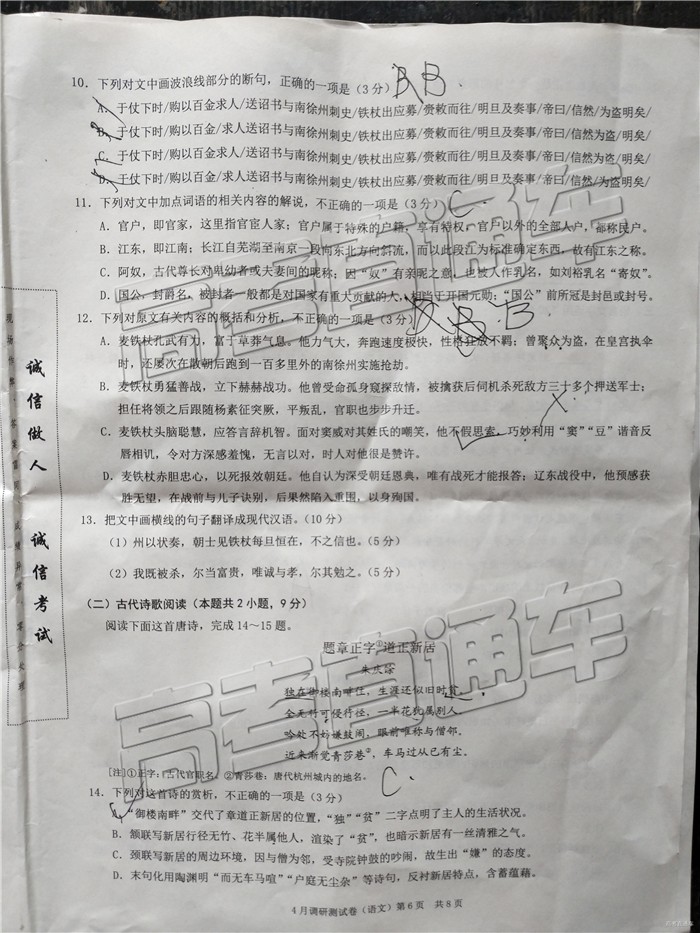 10. 下列对文中画波浪线部分的断句，正确的一项是（3分） B B
A. 于仗下时/购以百金求人/送诏书与南徐州刺史/铁杖出应募/赍敕而往/明旦及奏事/帝曰/信然/为盗明矣/
B. 于仗下时/购以百金/求人送诏书与南徐州刺史/铁杖出应募/赍敕而往/明旦及奏事/帝曰/信然为盗/明矣/
C. 于仗下时/购以百金求人/送诏书与南徐州刺史/铁杖出应募/赍敕而往/明旦及奏事/帝曰/信然为盗/明矣/
D. 于仗下时/购以百金/求人送诏书与南徐州刺史/铁杖出应募/赍敕而往/明旦及奏事/帝曰/信然/为盗明矣/
11. 下列对文中加点词语的相关内容的解说，不正确的一项是（3分） C.
A. 官户，即官家，这里指官宦人家；官户属于特殊的户籍，享有特权，官户以外的全部人户，都称民户。
B. 江东，即江南；长江自芜湖至南京一段向东北方向斜流，而以此段江为标准确定东西，故有江东之称。
C. 阿奴，古代尊长对卑幼者或夫妻间的昵称；因“奴”有亲昵之意，也被人作乳名，如刘裕乳名“寄奴”。
D. 国公，封爵名，被封者一般都是对国家有重大贡献的人，相当于开国元勋；“国公”前所冠是封邑或封号。
12. 下列对原文有关内容的概括和分析，不正确的一项是（3分） B. B
A. 麦铁杖孔武有力，富于草莽气息。他力气大，奔跑速度极快，性格狂放不羁；曾聚众为盗，在皇宫执伞
时，还屡次在散朝后跑到一百多里外的南徐州实施抢劫。
B. 麦铁杖勇猛善战，立下赫赫战功。他曾受命孤身窥探敌情，被擒获后伺机杀死敌方三十多个押送军士；
担任将领之后跟随杨素征突厥，平叛乱，官职也步步升迁。
C. 麦铁杖头脑聪慧，应答言辞机智。面对窦威对其姓氏的嘲笑，他不假思索，巧妙利用“窦”“豆”谐音反
唇相讥，令对方深感羞愧，无言以对，时人对他很是赞许。
D. 麦铁杖赤胆忠心，以死报效朝廷。他自认为深受朝廷恩典，唯有战死才能报答；辽东战役中，他预感获
胜无望，在战前与儿子诀别，后果然陷入重围，以身殉国。
13. 把文中画横线的句子翻译成现代汉语。（10分）
（1）州以状奏，朝士见铁杖每旦恒在，不之信也。（5分）
（2）我既被杀，尔当富贵，唯诚与孝，尔其勉之。（5分）
（二）古代诗歌阅读（本题共2小题，9分）
阅读下面这首唐诗，完成14～15题。
题章正字①道正新居
朱庆馀
独在御楼南畔住，生涯还似旧时贫。
全无竹可侵行径，一半花犹属别人。
吟处不妨嫌鼓闹，眼前唯称与僧邻。
近来渐觉青莎巷②，车马过从已有尘。
[注]①正字：古代官职名。②青莎巷：唐代杭州城内的地名。
14. 下列对这首诗的赏析，不正确的一项是（3分） C.
A. “御楼南畔”交代了章道正新居的位置，“独”“贫”二字点明了主人的生活状况。
B. 颔联写新居行径无竹、花半属他人，渲染了“贫”，也暗示新居有一丝清雅之气。
C. 颈联写新居的周边环境，因与僧为邻，受寺院钟鼓的吵闹，故生出“嫌”的态度。
D. 末句化用陶渊明“而无车马喧”“户庭无尘杂”等诗句，反衬新居特点，含蓄蕴藉。
4月调研测试卷（语文）第6页 共8页
诚信做人
诚信考试
高考直通车
高考直通车